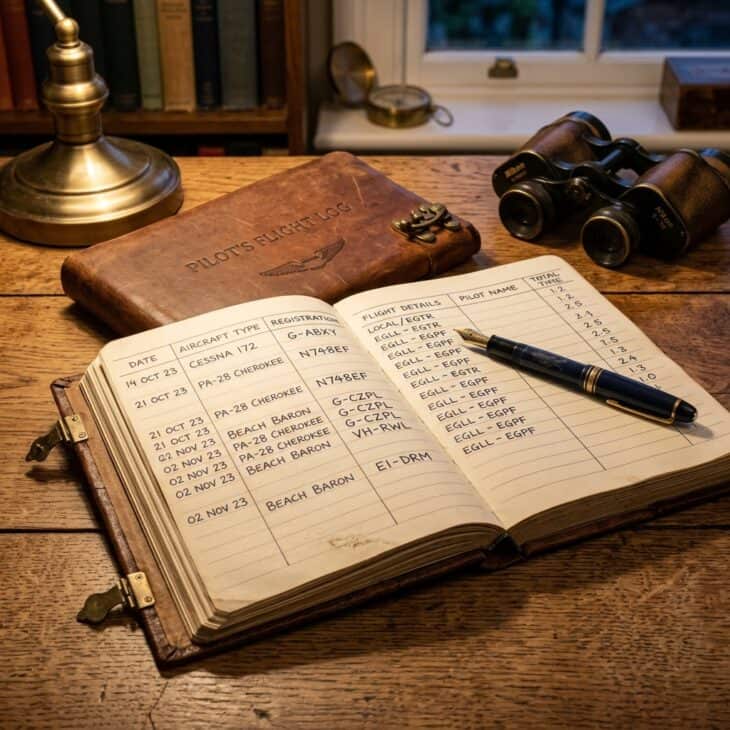 PILOT'S FLIGHT LOG
DATE AIRCRAFT TYPE REGISTRATION
14 OCT 23 CESSNA 172 G-ABXY
21 OCT 23 PA-28 CHEROKEE N748EF
21 OCT 23 PA-28 CHEROKEE N748EF
21 OCT 23 BEACH BARON G-CZPL
02 NOV 23 PA-28 CHEROKEE G-CZPL
02 NOV 23 BEACH BARON VH-RWL
02 NOV 23
02 NOV 23 BEACH BARON EI-DRM
FLIGHT DETAILS PILOT NAME TOTAL TIME
LOCAL/EGTR 1.2
EGLL - EGPF 1.2
EGLL - EGPF 2.5
EGLL - EGPF 2.5
EGLL - EGPF 2.5
EGLL - EGTR 1.3
EGLL - EGPF 2.4
EGLL - EGPF
EGLL - EGPF
EGLL - EGPF
EGLL - EGPF